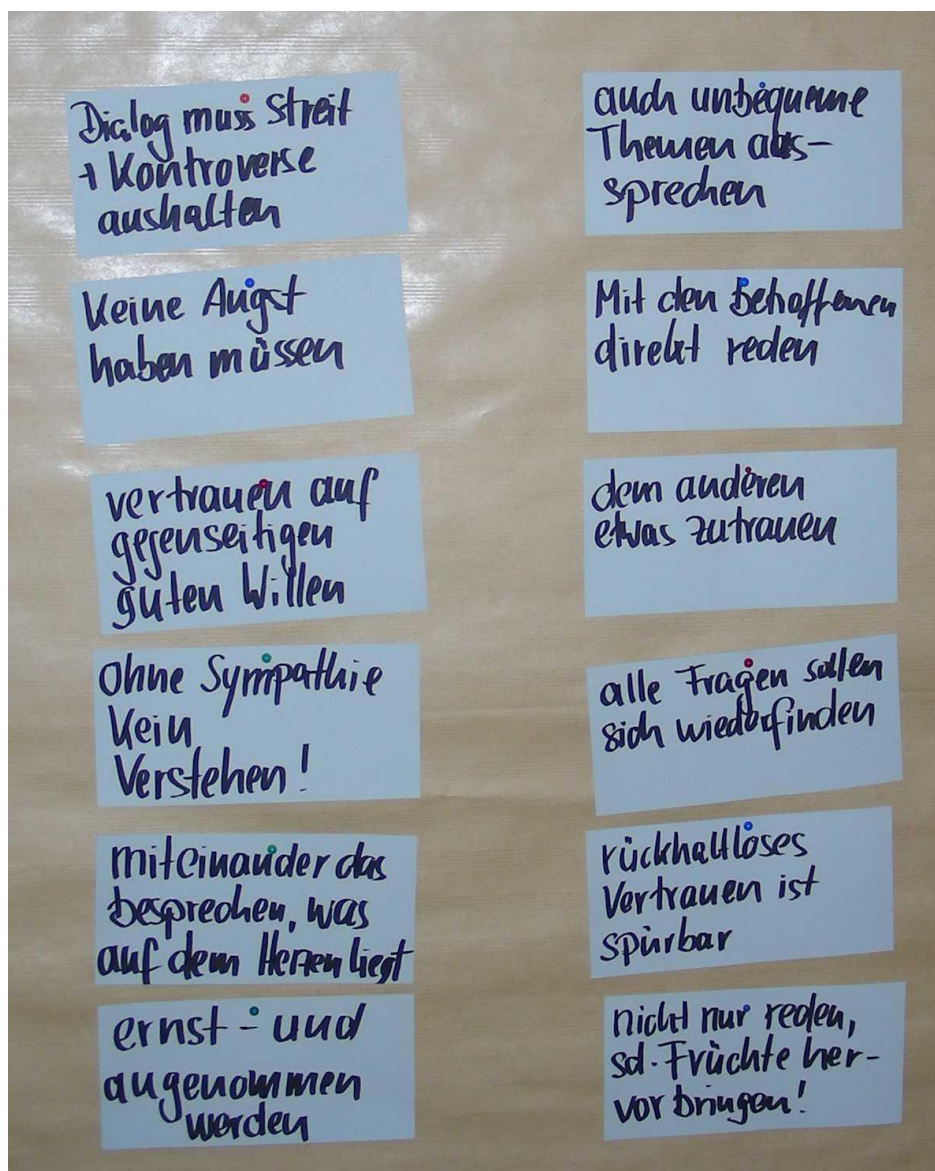 Dialog muss Streit
+ Kontroverse
aushalten
Keine Angst
haben müssen
vertrauen auf
gegenseitigen
guten Willen
Ohne Sympathie
kein
Verstehen!
miteinander das
besprechen, was
auf dem Herzen liegt
ernst- und
angenommen
werden
auch unbequeme
Themen aus-
sprechen
Mit den Betroffenen
direkt reden
dem anderen
etwas zutrauen
alle Fragen sollen
sich wiederfinden
rückhaltloses
Vertrauen ist
spürbar
nicht nur reden,
sd. Früchte her-
vorbringen!